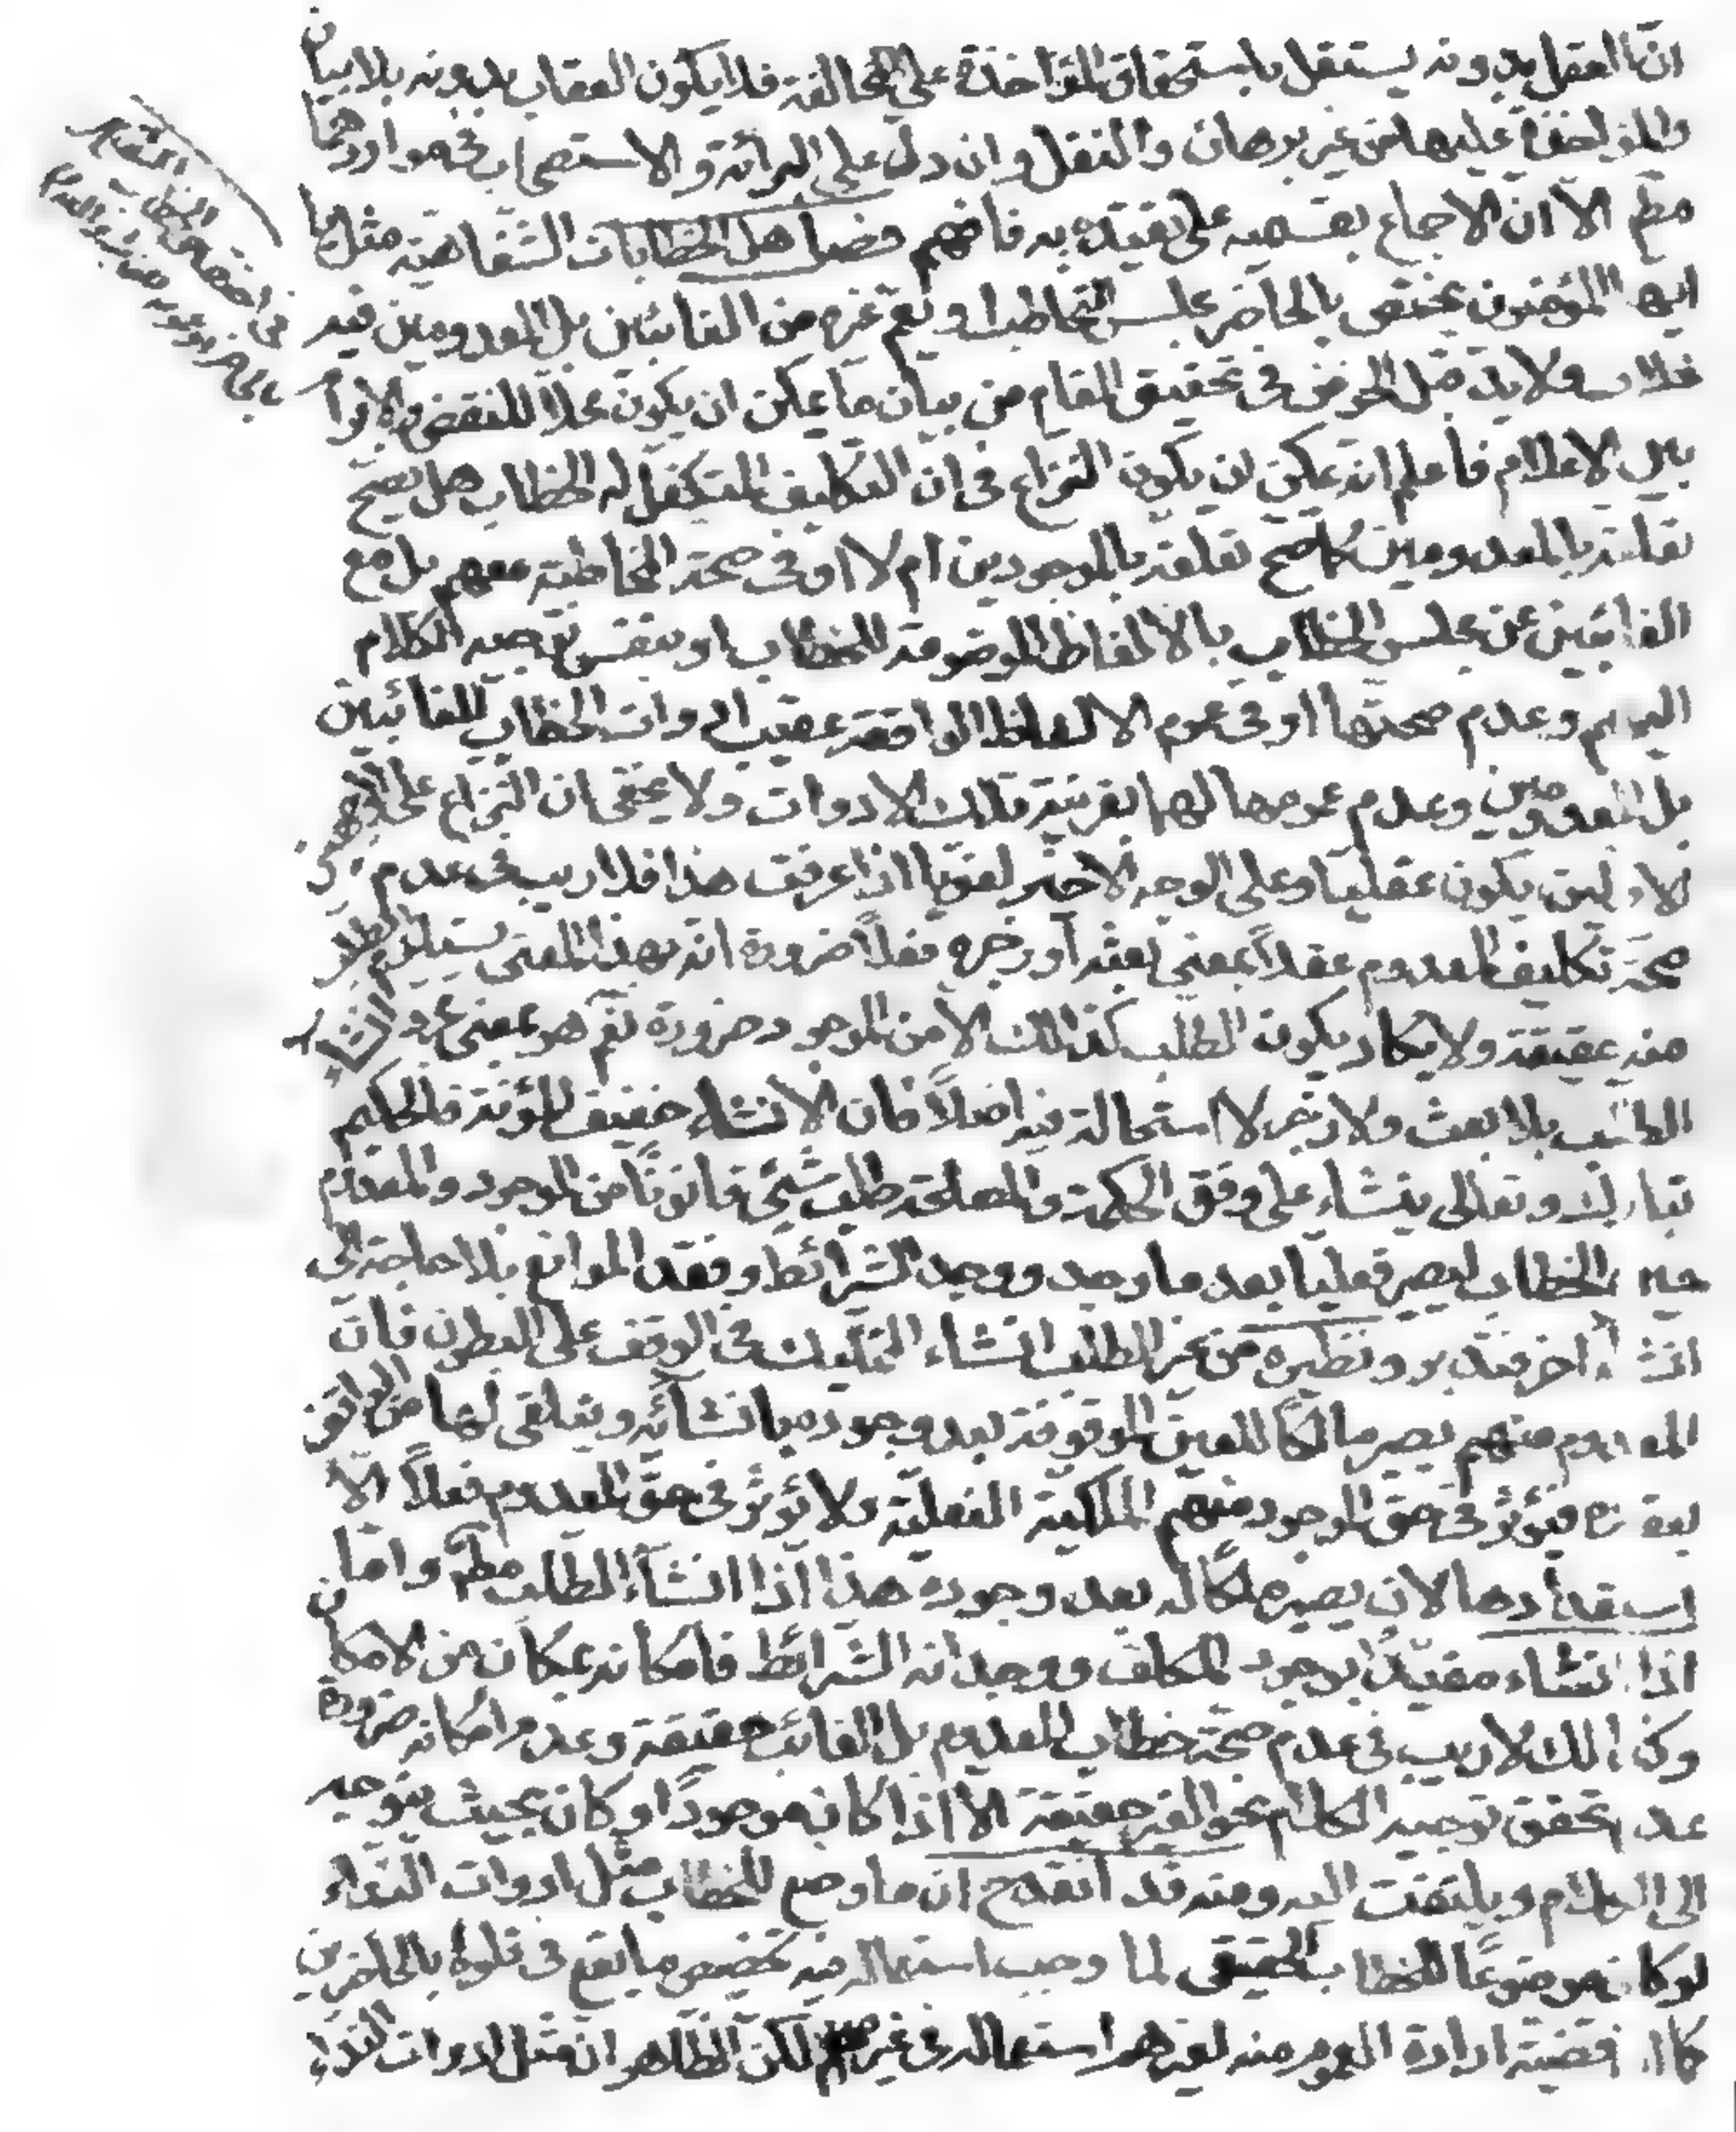 ان العقل بدونه يستقل باستحقاق المؤاخذة على المخالفة فلا يكون العقاب بدونه بلا بيان
والمؤاخذة عليها من غير برهان والنقل وان دل على البرائة والاستصحاب في مواردهما
مط الا ان الاجماع بقسميه على تقييده به فافهم فصل هل الخطابات الشفاهية مثل يا
ايها المؤمنون يختص بالحاضر مجلس التخاطب او تعم غيره من الغائبين بل المعدومين فيه
خلاف ولا بد قبل الخوض في تحقيق المقام من بيان ما يمكن ان يكون محلا للنقض والابرام
بين الاعلام فاعلم انه يمكن ان يكون النزاع في ان التكليف المتكفل له الخطاب هل يصح
تعلقه بالمعدومين كما صح تعلقه بالموجودين ام لا او في صحة المخاطبة معهم بل مع
الغائبين عن مجلس الخطاب بالالفاظ الموضوعة للخطاب او بنفس توجيه الكلام
اليهم وعدم صحتها او في عموم الالفاظ الواقعة عقيب ادوات الخطاب للغائبين
بل المعدومين وعدم عمومها لهما بقرينة تلك الادوات ولا يخفى ان النزاع على الوجهين
الاولين يكون عقليا وعلى الوجه الاخير لغويا اذا عرفت هذا فلا ريب في عدم
صحة تكليف المعدوم عقلاً بمعنى بعثه او زجره فعلاً ضرورة انه بهذا المعنى يستلزم الطلب
منه حقيقة ولا يكاد يكون الطلب كذالك الا من الموجود ضرورة نعم هو بمعنى مجرد انشاء
الطلب بلا بعث ولا زجر لا استحالة فيه اصلاً فان الانشاء خفيف المؤنة فالحكيم
تبارك وتعالى ينشاء على وفق الحكمة والمصلحة طلب شيئ قانونًا من الموجود والمعدوم
حين الخطاب ليصير فعليا بعد ما وجد ووجد الشرائط وفقد الموانع بلا حاجة الى
انشاء اخر فتدبر ونظيره من غير الطلب انشاء التمليك في الوقف على البطون فان
المعدوم منهم يصير مالكًا للعين الموقوفة بعد وجوده بانشائه ويتلقى لها من الواقف
بعقده فيؤثر في حق الموجود منهم الملكية الفعلية ولا يؤثر في حق المعدوم فعلاً الا
استعدادها لان يصير ملكًا له بعد وجوده هذا اذا انشاء الطلب مط واما
اذا انشاء مقيدًا بوجود المكلف ووجدانه الشرائط فامكانه بمكان من الامكان
وكذالك لا ريب في عدم صحة خطاب المعدوم بل الغائب حقيقة وعدم امكانه ضرورة
عدم تحقق توجيه الكلام نحو الغير حقيقة الا اذا كان موجودًا وكان بحيث يتوجه
الى الكلام ويلتفت اليه ومنه قد انقدح ان ما وضع للخطاب مثل ادوات النداء
لو كان موضوعًا للخطاب الحقيقي لما وجب استعماله فيه تخصيص ما يقع في تلوه بالحاضرين
كما ان قضية ارادة العموم منه لغيرهم استعماله في غيره لكن الظاهر ان مثل ادوات النداء
في اختصاص الخطاب
بالحاضر او عمومه